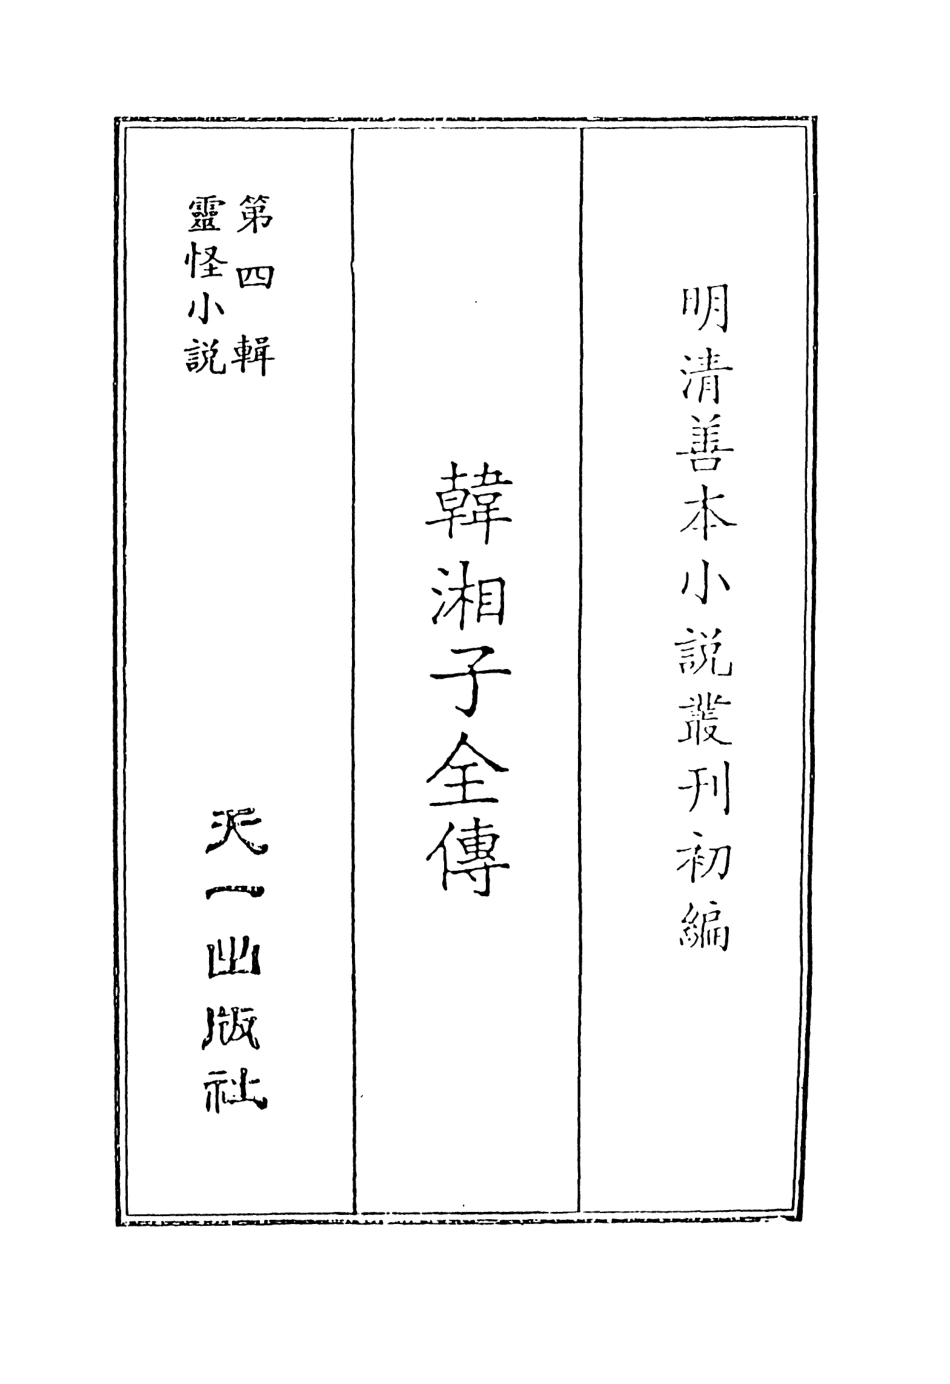 明清善本小説叢刊初編
韓湘子全傳
第四輯
靈怪小説
天一出版社